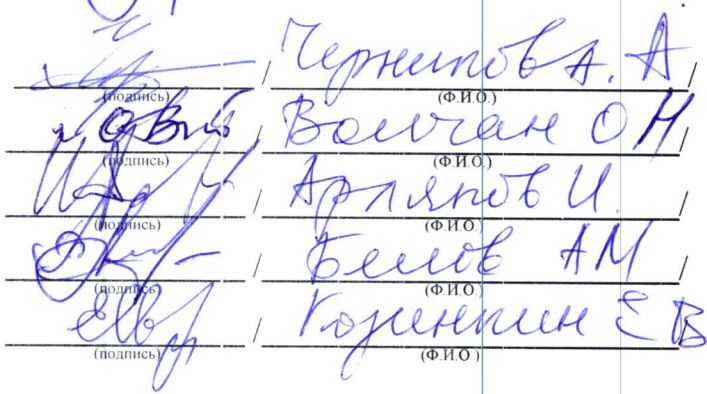 / Черников А. А /
(подпись) (Ф.И.О.)
/ Волчан О Н /
(подпись) (Ф.И.О.)
/ Арляпов И. /
(подпись) (Ф.И.О.)
/ Белов АМ /
(подпись) (Ф.И.О.)
/ Козинкин Е В
(подпись) (Ф.И.О.)